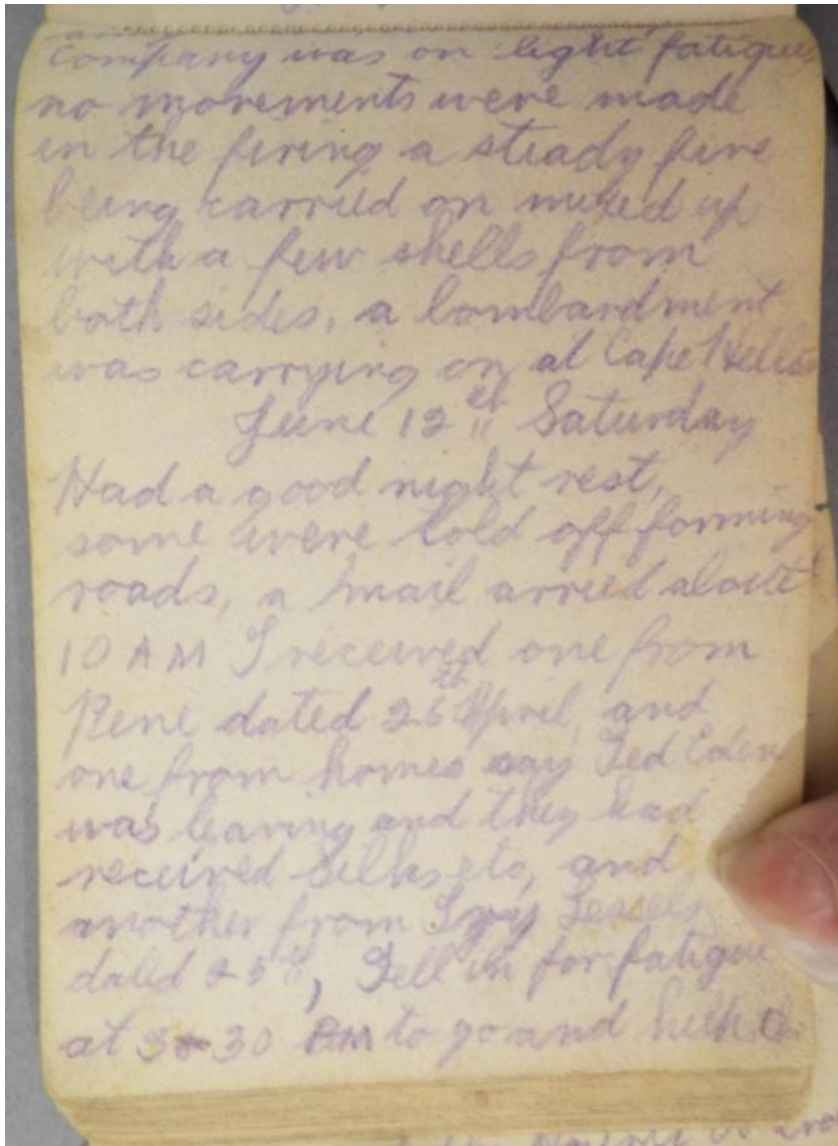 Company was on light fatigues
no movements were made
in the firing a steady fire
being carried on mixed up
with a few shells from
both sides, a bombardment
was carrying on at Cape Helles
June 12th Saturday
Had a good night rest,
some were told off forming
roads, a mail arried about
10 AM I received one from
Rene dated 26th April, and
one from homes say Ted Eden
was leaving and they had
received silks etc, and
another from
dated 25th, Fell in for fatigue
at 30 to go and